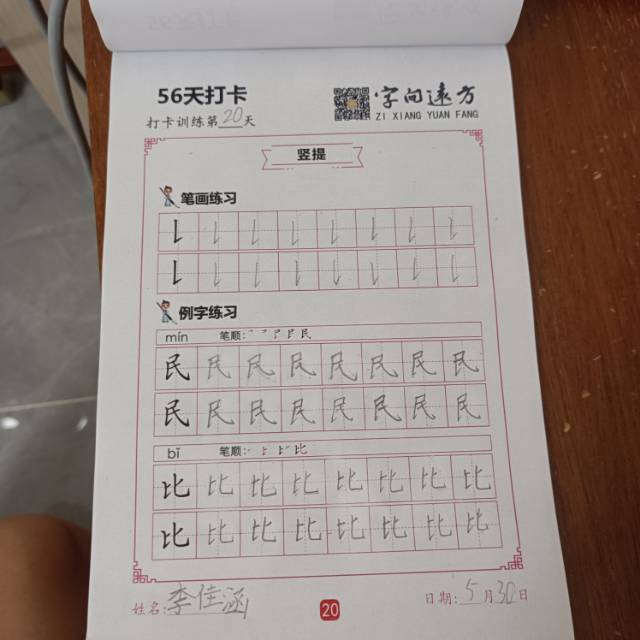 56天打卡
字向远方
ZI XIANG YUAN FANG
打卡训练第20天
竖提
笔画练习
例字练习
mín 笔顺:
民 民 民 民 民 民 民 民
民 民 民 民 民 民 民 民
bǐ 笔顺:
比 比 比 比 比 比 比 比
比 比 比 比 比 比 比 比
姓名:李佳涵 20 日期:5月30日